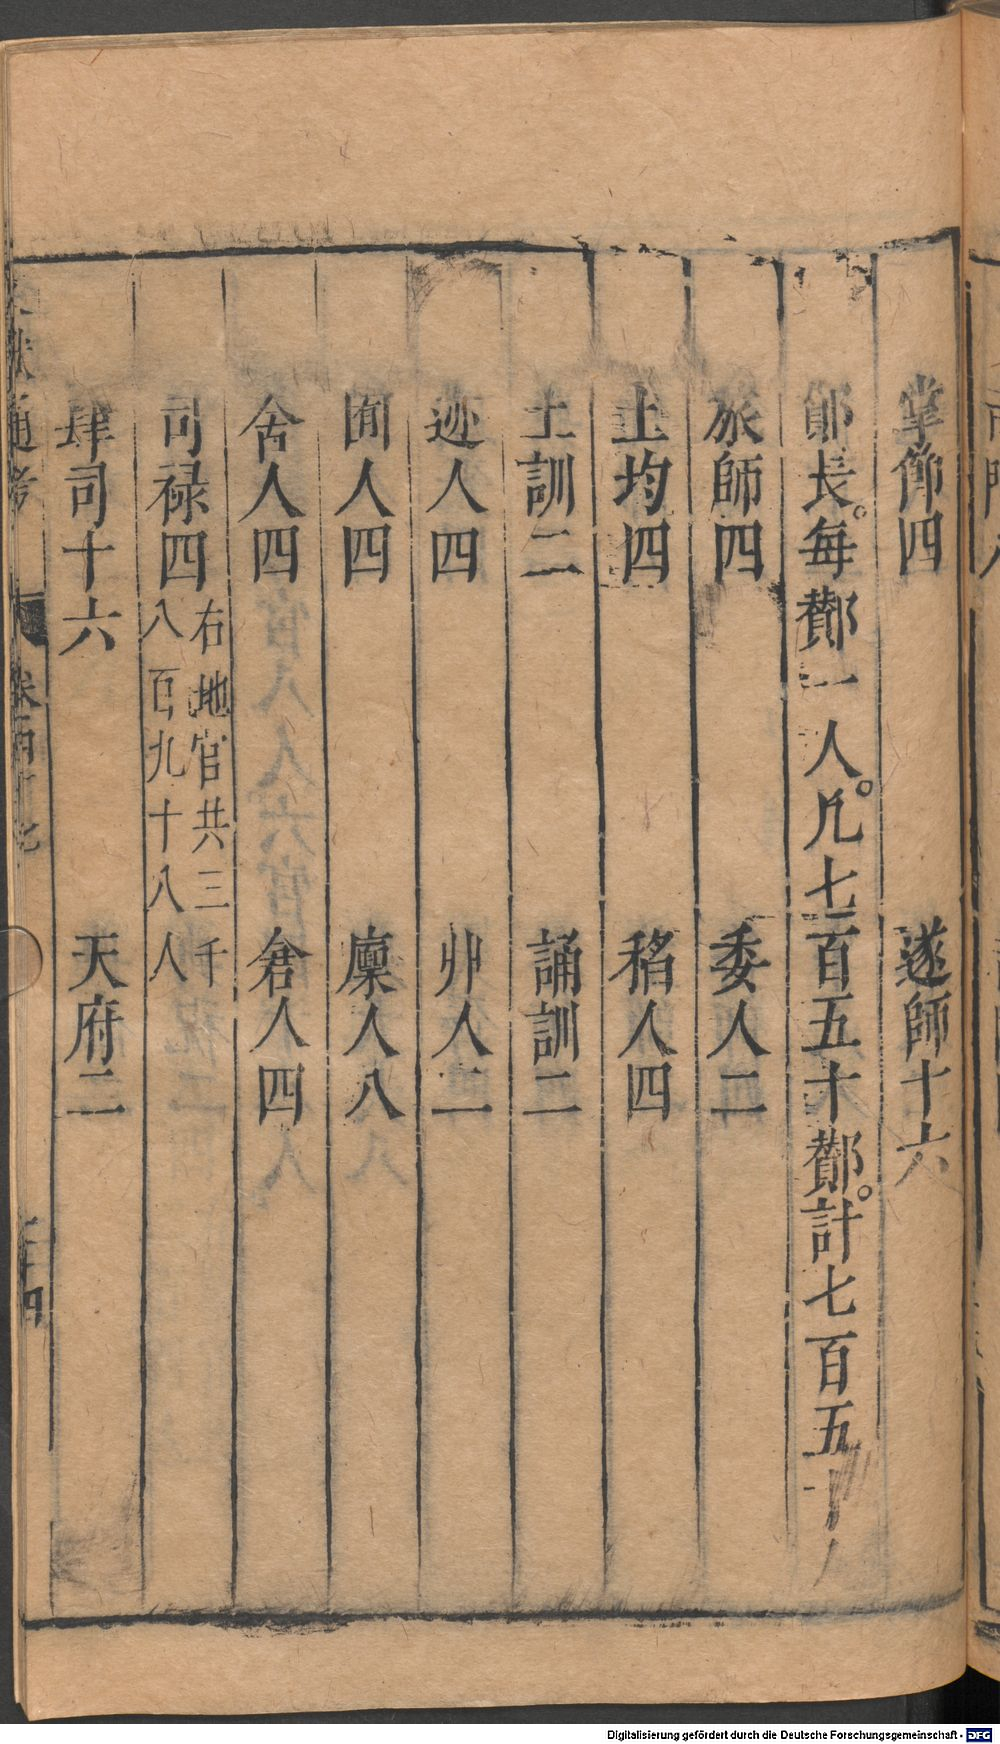 掌節四　遂師十六
鄼長。每鄼一人。凡七百五十鄼。計七百五十人
旅師四　委人二
土均四　稻人四
土訓二　誦訓二
迹人四　丱人二
囿人四　廩人八
舍人四　倉人四
司祿四
右地官共三千
八百九十八人
肆司十六　天府二
通考
Digitalisierung gefördert durch die Deutsche Forschungsgemeinschaft - DFG